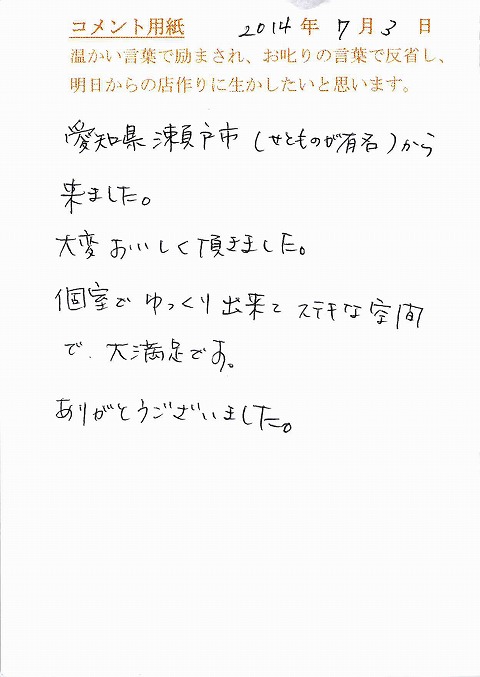 コメント用紙 2014年7月3日
温かい言葉で励まされ、お叱りの言葉で反省し、
明日からの店作りに生かしたいと思います。
愛知県瀬戸市(せとものが有名)から
来ました。
大変おいしく頂きました。
個室でゆっくり出来てステキな空間
で、大満足です。
ありがとうございました。